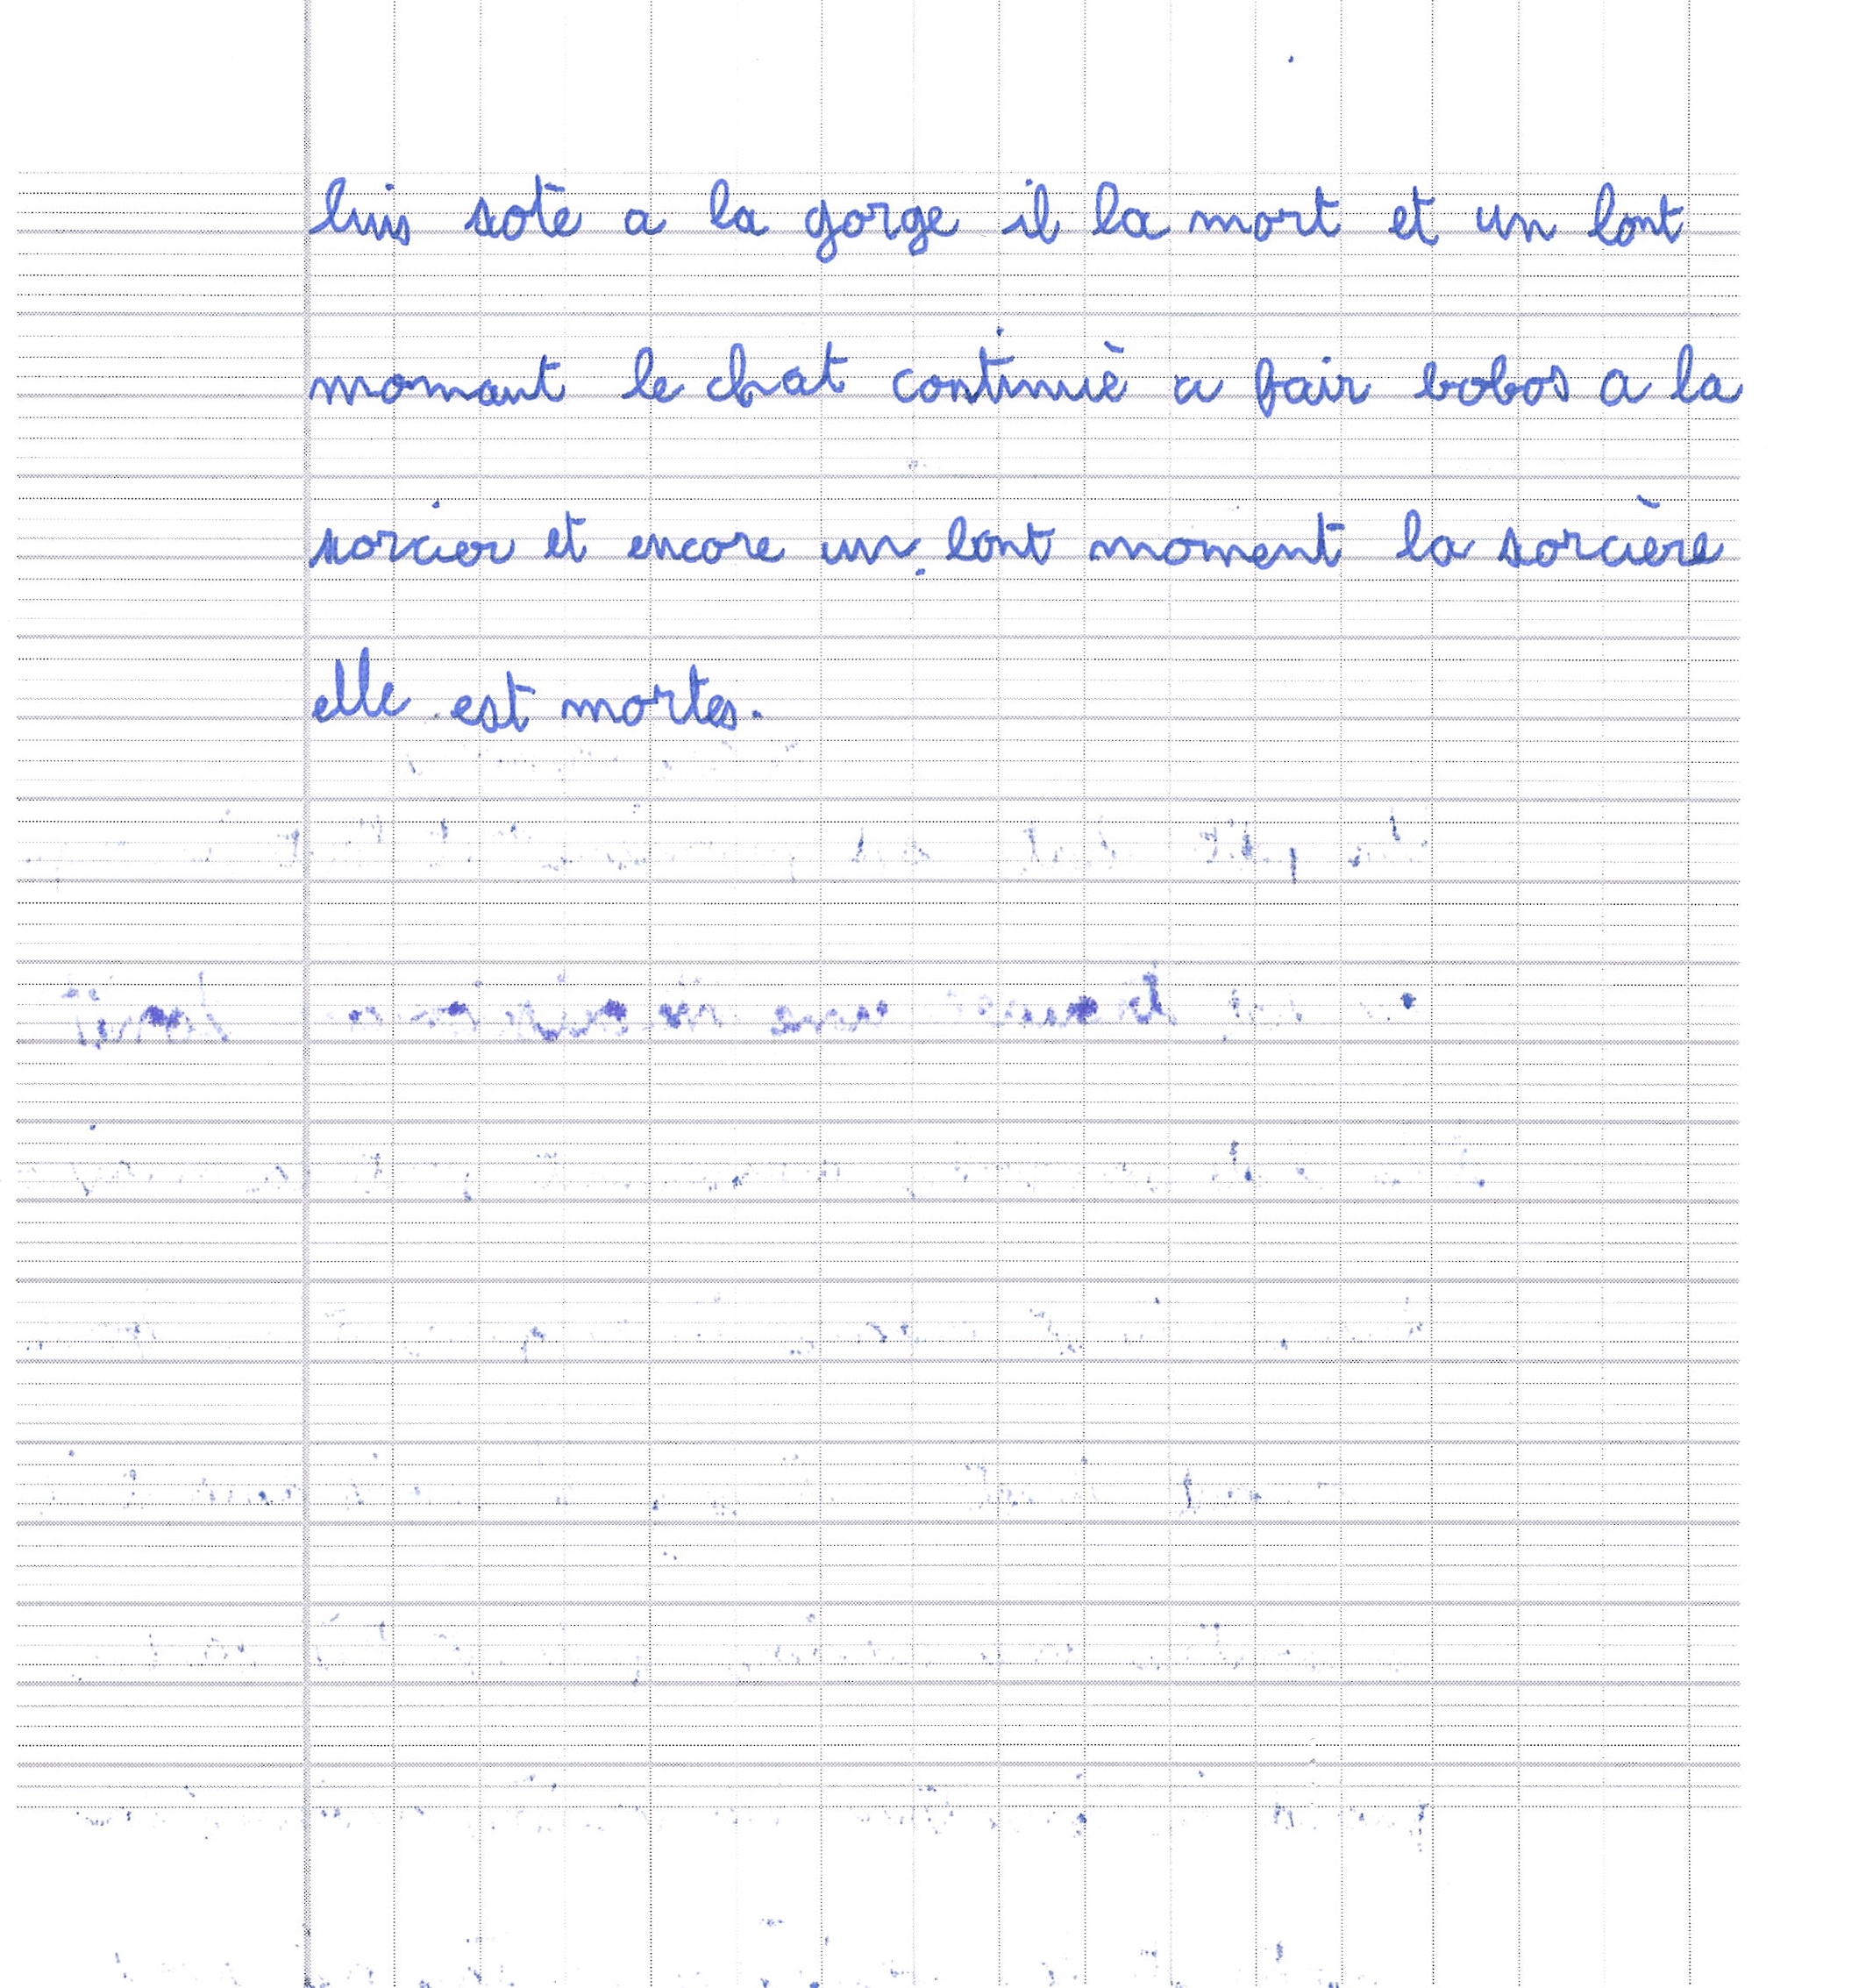 luis sote a la gorge il la mort et un lont
momant le chat continuè a fair bobos a la
sorcier et encore un lont moment la sorcière
elle est mortes.